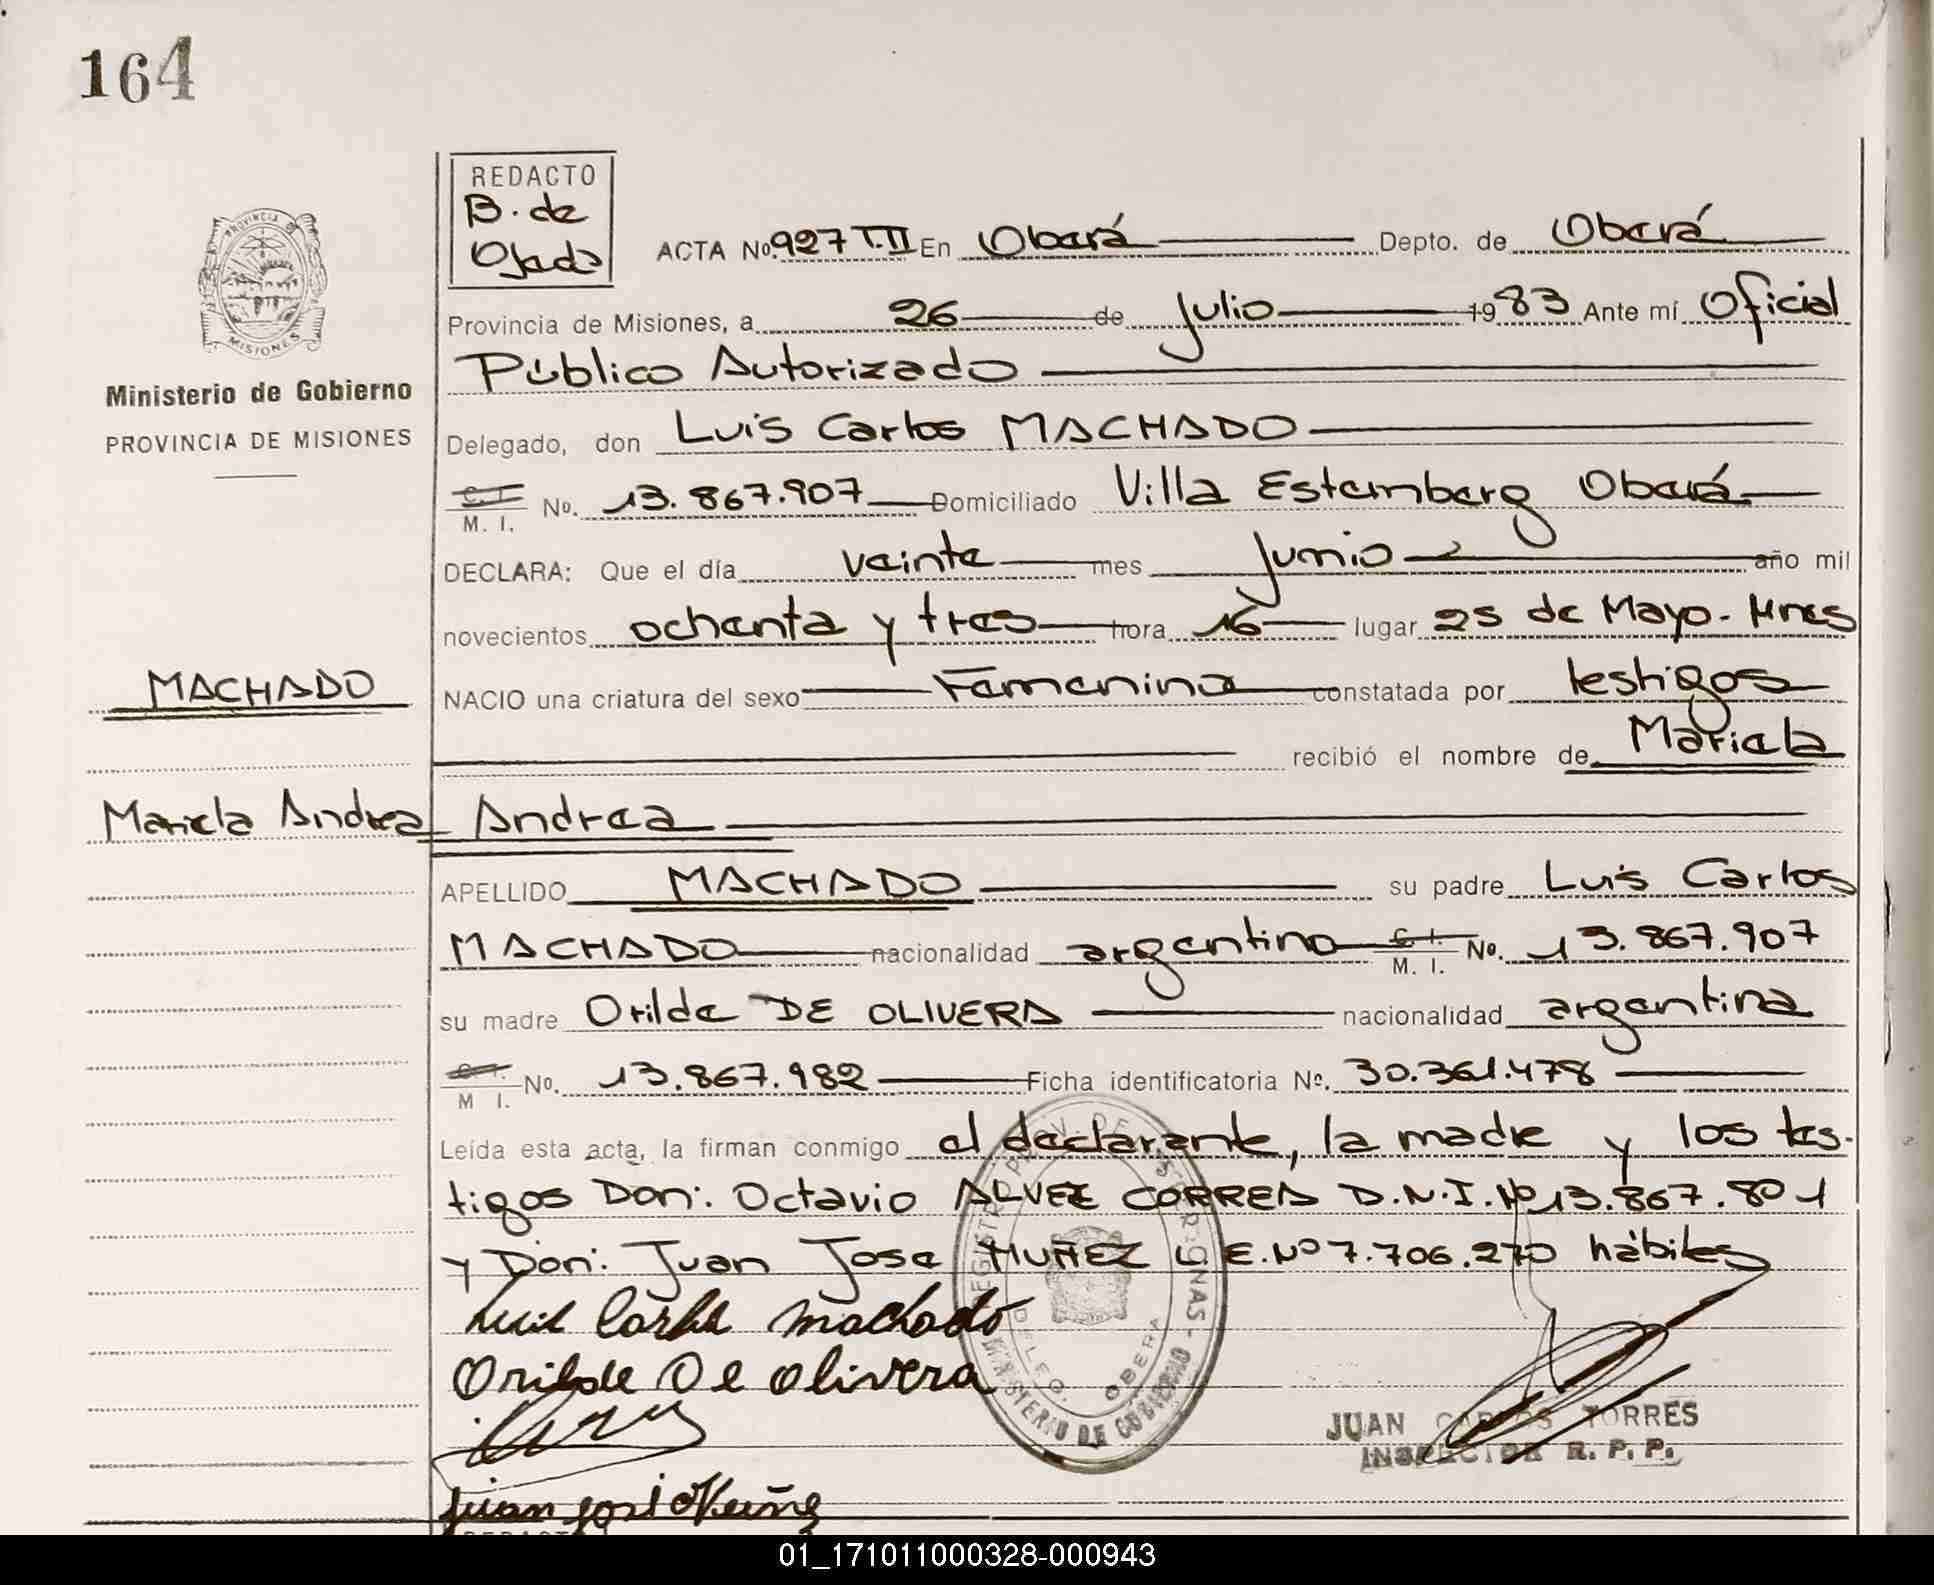 164
REDACTO
B. de
Ojeda
ACTA No. 927 T.II En Oberá Depto. de Oberá
Provincia de Misiones, a 26 de Julio 1983 Ante mí Oficial
Público Autorizado
Ministerio de Gobierno
PROVINCIA DE MISIONES
Delegado, don Luis Carlos MACHADO
C. I. M. I. No. 13.867.907 Domiciliado Villa Estemberg Oberá
DECLARA: Que el día veinte mes Junio año mil
novecientos ochenta y tres hora 16 lugar 25 de Mayo. Mnes
MACHADO
NACIO una criatura del sexo Femenino constatada por testigos
recibió el nombre de Mariela
Mariela Andrea
Andrea
APELLIDO MACHADO su padre Luis Carlos
MACHADO nacionalidad argentino C. I. M. I. No. 13.867.907
su madre Orilde DE OLIVERA nacionalidad argentina
C. I. M I. No. 13.867.982 Ficha identificatoria No. 30.361.478
Leída esta acta, la firman conmigo el declarante, la madre y los tes-
tigos Don: Octavio ALVEZ CORREA D.N.I. Nº 13.867.801
y Don: Juan Jose MUÑEZ L.E. Nº 7.706.270 hábiles
Luis Carlos Machado
Orilde De Olivera
PROVINCIA
MISIONES
REGISTRO PROV. DE LAS PERSONAS -
MINISTERIO DE GOBIERNO
DELEG. OBERA
JUAN CARLOS TORRES
INSPECTOR R. P. P.
01_171011000328-000943